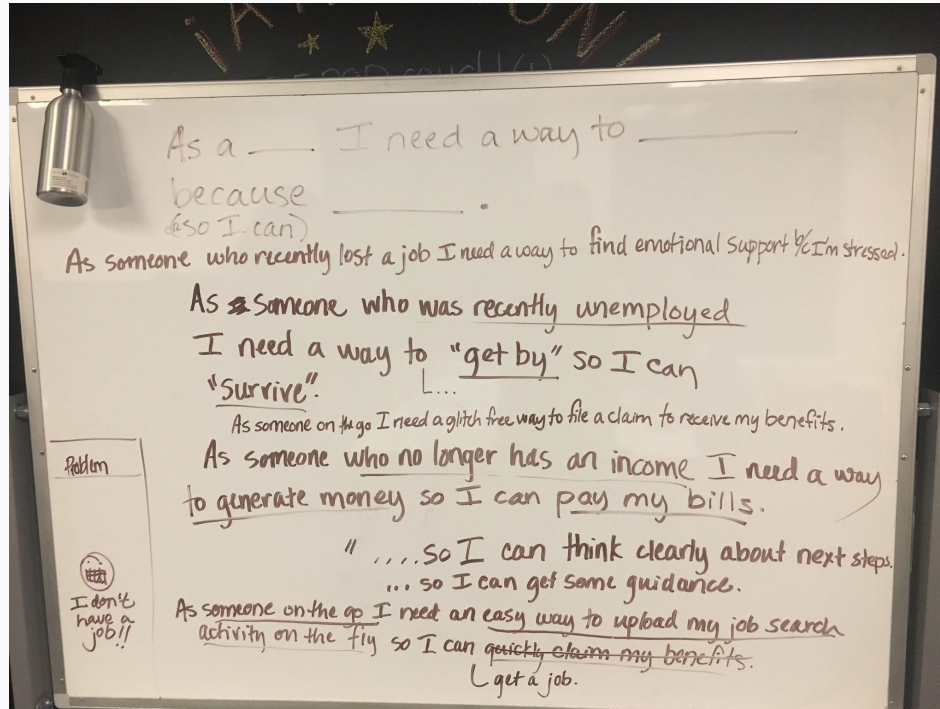 As a ____ I need a way to ________
because ________.
(so I can)
As someone who recently lost a job I need a way to find emotional support b/c I'm stressed.
As someone who was recently unemployed
I need a way to "get by" so I can
"survive". ...
As someone on the go I need a glitch free way to file a claim to receive my benefits.
As someone who no longer has an income I need a way
to generate money so I can pay my bills.
" ....so I can think clearly about next steps.
... so I can get some guidance.
As someone on the go I need an easy way to upload my job search
activity on the fly so I can quickly claim my benefits.
get a job.
Problem
I don't
have a
job!!